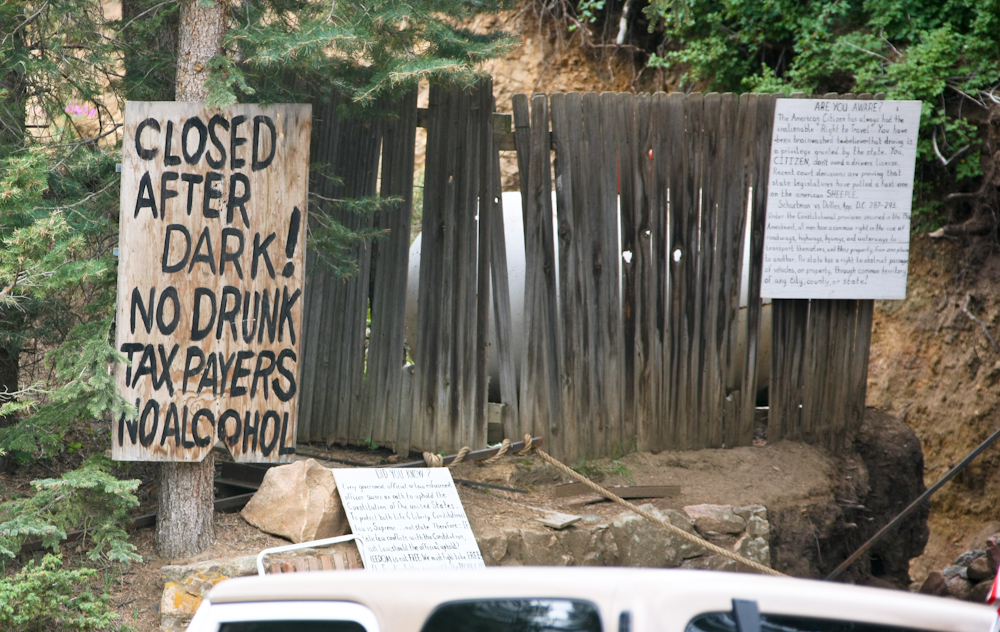 CLOSED
AFTER
DARK!
NO DRUNK
TAX PAYERS
NO ALCOHOL
ARE YOU AWARE?
The American Citizen has always had the
inalienable "Right to Travel". You have
been brainwashed to believe that driving is
a privilege granted by the state. You,
CITIZEN, don't need a drivers license.
Recent court decisions are proving that
state legislatures have pulled a fast one
on the american SHEEPLE.
D.C. 287-295.
Under the Constitutional provision
Amendment, all men have a common right in the use of
roadways, highways, byways, and waterways to
transport themselves, and their property from one place
to another. No state has a right to obstruct passage
of vehicles, or property, through common territory
of any city, county, or state!
DID YOU KNOW?
Every government official or law enforcement
officer swears an oath to uphold the
Constitution of the united States.
To protect both Life & Liberty. Constitutional
law is Supreme
state law conflicts with the Constitution
what law should the official uphold?
FREEDOM is not FREE. We must fight
FREE